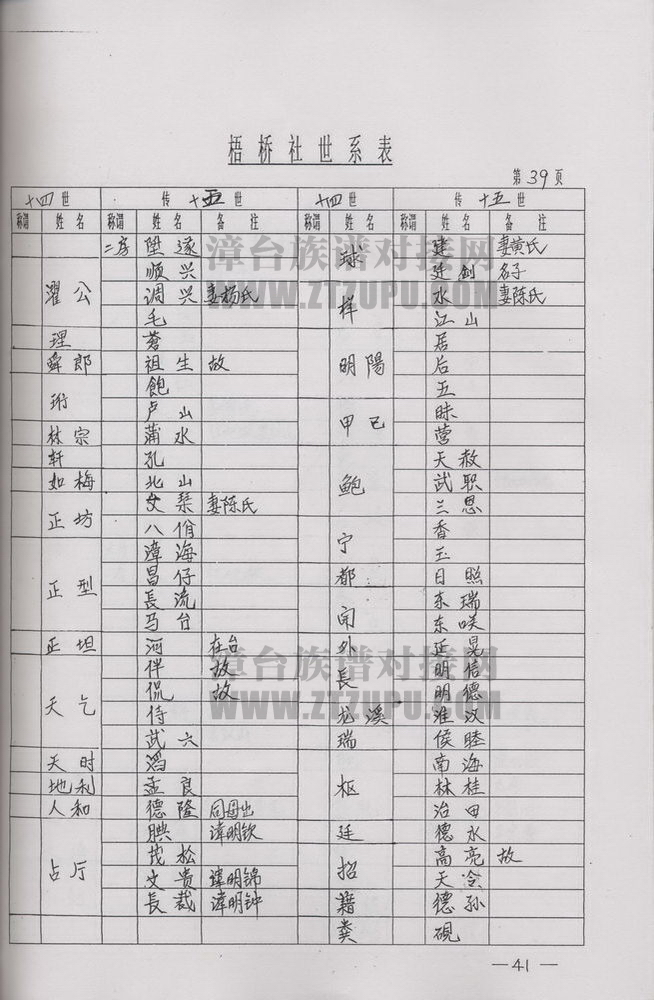 梧桥社世系表
第39页
十四世 传十五世 十四世 传十五世
称谓 姓名 称谓 姓名 备注 称谓 姓名 称谓 姓名 备注
二房 坠遂 球 建 妻黄氏
濯公 顺兴 廷剑 名子
调兴 妻杨氏 样 水 妻陈氏
毛 江山
理 蒼 明陽 居
舜郎 祖生 故 后
珩 飽 五
卢山 甲己 昧
林宗 蒲水 营
轩 孔 鲍 天赦
如梅 北山 武职
正坊 文琹 妻陈氏 三恩
八佾 宁 香
正型 漳海 玉
昌仔 都 日照
長流 闭 东瑞
马台 东咲
正坦 河 在台 外 延晃
天气 伴 故 長 明信
侃 故 明德
侍 龙溪 淮汉
武六 瑞 侯睦
天时 滔 枢 南海
地利 孟良 林桂
人和 德隆 同母出 治田
占厅 腆 諱明钦 廷 德水
茂松 招 高亮 故
文贵 諱明锦 天冷
長裁 諱明钟 籍 德孙
粪 硯
—41—
漳台族谱对接网
WWW.ZTZUPU.COM
漳台族谱对接网
WWW.ZTZUPU.COM